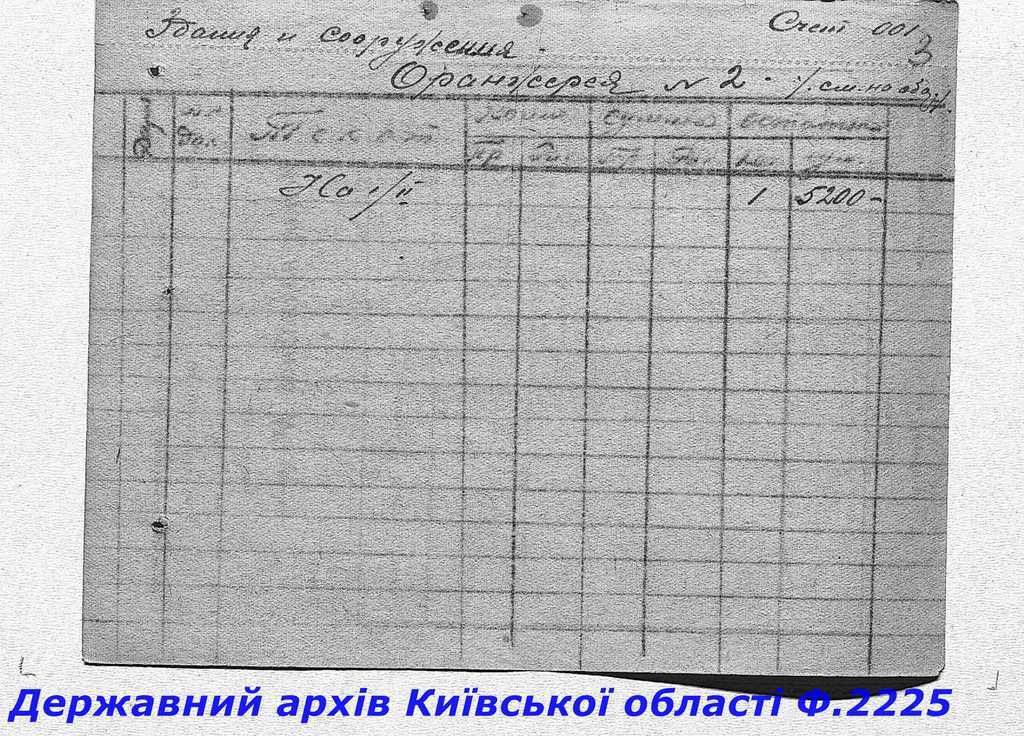 Здания и сооружения. Счет 001
3
Оранжерея № 2. /см. на обор./
Дата № док. Текст Колич. Сумма Остаток
Пр. Пр. кол. сум.
На 1/II 1 5200-
Державний архів Київської області Ф.2225